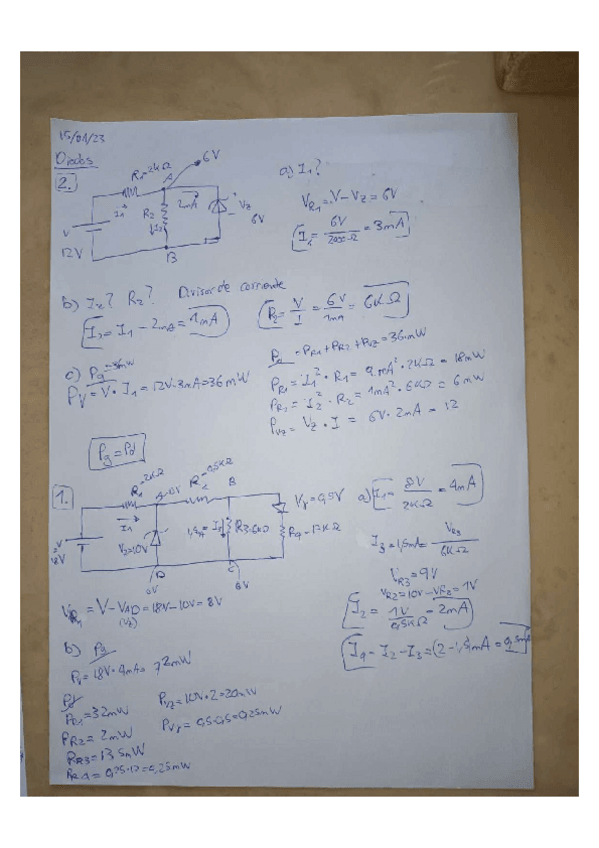 15/01/23
Diodos
2.
R1=2KΩ
A
6V
I1
R2
2mA
I2
Vz
6V
V
12V
B
a) I1?
VR1=V-Vz=6V
I1= 6V/2000Ω = 3mA
b) I2? R2? Divisor de corriente
I2= I1 - 2mA = 1mA
R2= V/I = 6V/1mA = 6KΩ
c) Pg=36mW
PV=V·I1=12V·3mA=36mW
Pg=Pd
Pd =PR1+PR2+PVz=36mW
PR1= I1²·R1= 9mA²·2KΩ=18mW
PR2= I2²·R2= 1mA²·6KΩ= 6mW
PVz= Vz·I = 6V·2mA = 12
1.
R1=2KΩ
R2=0,5KΩ
B
I1
Vz=10V
1,5mA=I3
R3=6KΩ
Vγ=0,5V
18V
D
0V
C
0V
a) I1= 8V/2KΩ = 4mA
I3=1,5mA= VR3/6KΩ
VR3=9V
VR2=10V-VR3=1V
I2= 1V/0,5KΩ = 2mA
VR1=V-VAD=18V-10V=8V
(Vz)
b) Pg
PV=18V·4mA= 72mW
Pd
PR1=32mW
PR2= 2mW
PR3=13,5mW
PVz=10V·2=20mW
PVγ= 0,5·0,5=0,25mW